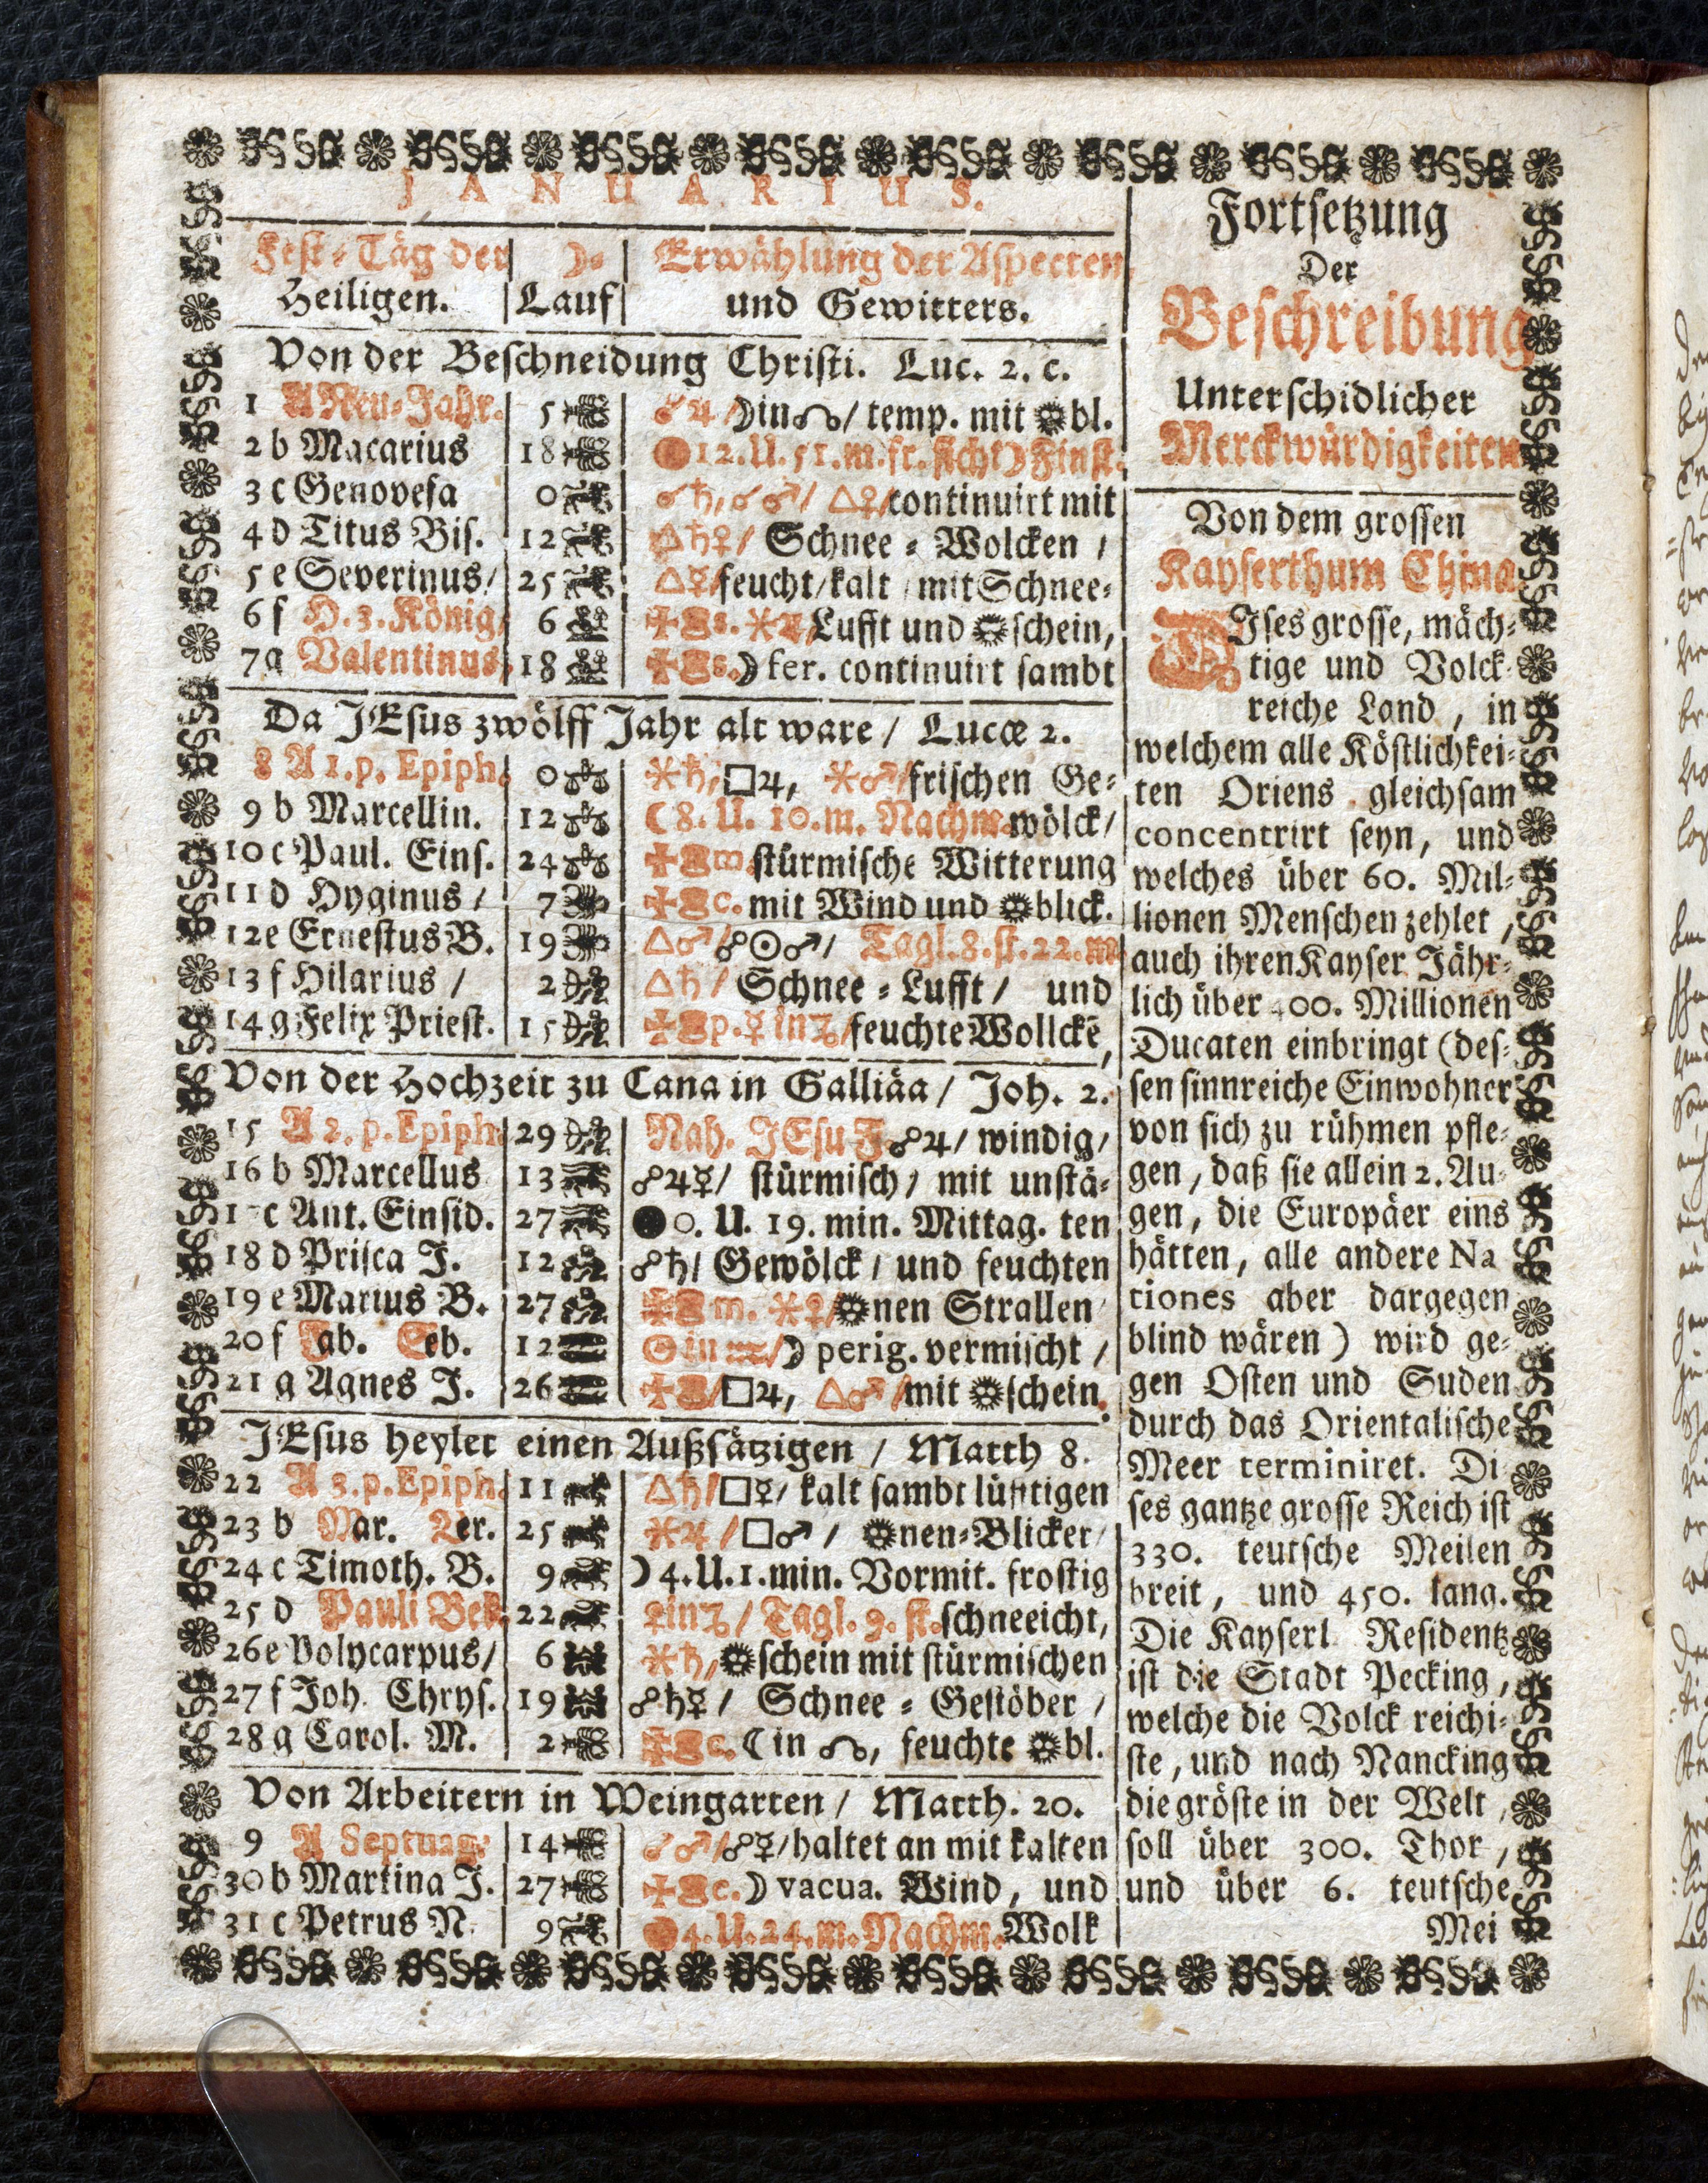 JANUARIUS.
Fest-Täg der Heiligen. | ☽- Lauf | Erwählung der Aspecten und Gewitters.
Von der Beschneidung Christi. Luc. 2. c.
1 A Neu-Jahr. 5 ☌♃/☽in☊/ temp. mit bl.
2 b Macarius 18 12.U.51.m.fr.sicht☽Finst.
3 c Genovefa 0 ☌♄,☌♂/ △♀/continuirt mit
4 d Titus Bis. 12 △♄♀/ Schnee-Wolcken /
5 e Severinus/ 25 △☿/feucht/kalt/mit Schnee-
6 f H. 3. König/ 6 s. Lufft und schein,
7 g Valentinus, 18 s. ☽ fer. continuirt sambt
Da JEsus zwölff Jahr alt ware / Lucæ 2.
8 A 1. p. Epiph. 0 ⚹♄,□♃, ⚹♂/frischen Ge-
9 b Marcellin. 12 ☾8. U. 10. m. Nachm. wölck/
10 c Paul. Eins. 24 m. stürmische Witterung
11 d Hyginus / 7 c. mit Wind und blick.
12 e Ernestus B. 19 △♂/☍☉♂/ Tagl. 8. st. 22. m
13 f Hilarius / 2 △♄/ Schnee-Lufft/ und
14 g Felix Priest. 15 p. ☿ in♑/feuchte Wollckē,
Von der Hochzeit zu Cana in Galliäa / Joh. 2.
15 A 2. p. Epiph. 29 Nah. JEsu F. ☍♃/ windig/
16 b Marcellus 13 ☍♃☿/ stürmisch/ mit unstä-
1 c Ant. Einsid. 27 ●0. U. 19. min. Mittag. ten
18 d Prisca J. 12 ☍♄/ Gewölck / und feuchten
19 e Marius B. 27 m. ⚹♀/ nen Strallen
20 f Fab. Seb. 12 ☉ in ♒/☽ perig. vermischt /
21 g Agnes J. 26 /□♃, △♂/mit schein.
JEsus heylet einen Außsätzigen / Matth 8.
22 A 3. p. Epiph. 11 △♄/□☿/ kalt sambt lüfftigen
23 b Mar. Ver. 25 ⚹♃/□♂/ nen-Blicker/
24 c Timoth. B. 9 ☽4.U.1.min. Vormit. frostig
25 d Pauli Bek. 22 ♀in♑/ Tagl. 9. st. schneeicht,
26 e Polycarpus/ 6 ⚹♄, schein mit stürmischen
27 f Joh. Chrys. 19 ☍♄☿/ Schnee-Gestöber /
28 g Carol. M. 2 c. ☾in ☊, feuchte bl.
Von Arbeitern in Weingarten / Matth. 20.
9 A Septuag. 14 ☌♂/☍☿/haltet an mit kalten
30 b Martina J. 27 c.☽ vacua. Wind, und
31 c Petrus N. 9 4. U. 24. m. Nachm. Wolk
Fortsetzung
Der
Beschreibung
Unterschidlicher
Merckwürdigkeiten
Von dem grossen
Kayserthum China.
DIses grosse, mäch-
tige und Volck-
reiche Land, in
welchem alle Köstlichkei-
ten Oriens gleichsam
concentrirt seyn, und
welches über 60. Mil-
lionen Menschen zehlet,
auch ihren Kayser Jähr-
lich über 400. Millionen
Ducaten einbringt (des-
sen sinnreiche Einwohner
von sich zu rühmen pfle-
gen, daß sie allein 2. Au-
gen, die Europäer eins
hätten, alle andere Na
tiones aber dargegen
blind wären) wird ge-
gen Osten und Suden
durch das Orientalische
Meer terminiret. Di
ses gantze grosse Reich ist
330. teutsche Meilen
breit, und 450. lang.
Die Kayserl. Residentz
ist die Stadt Pecking,
welche die Volck reichi-
ste, und nach Nancking
die gröste in der Welt,
soll über 300. Thor,
und über 6. teutsche
Mei